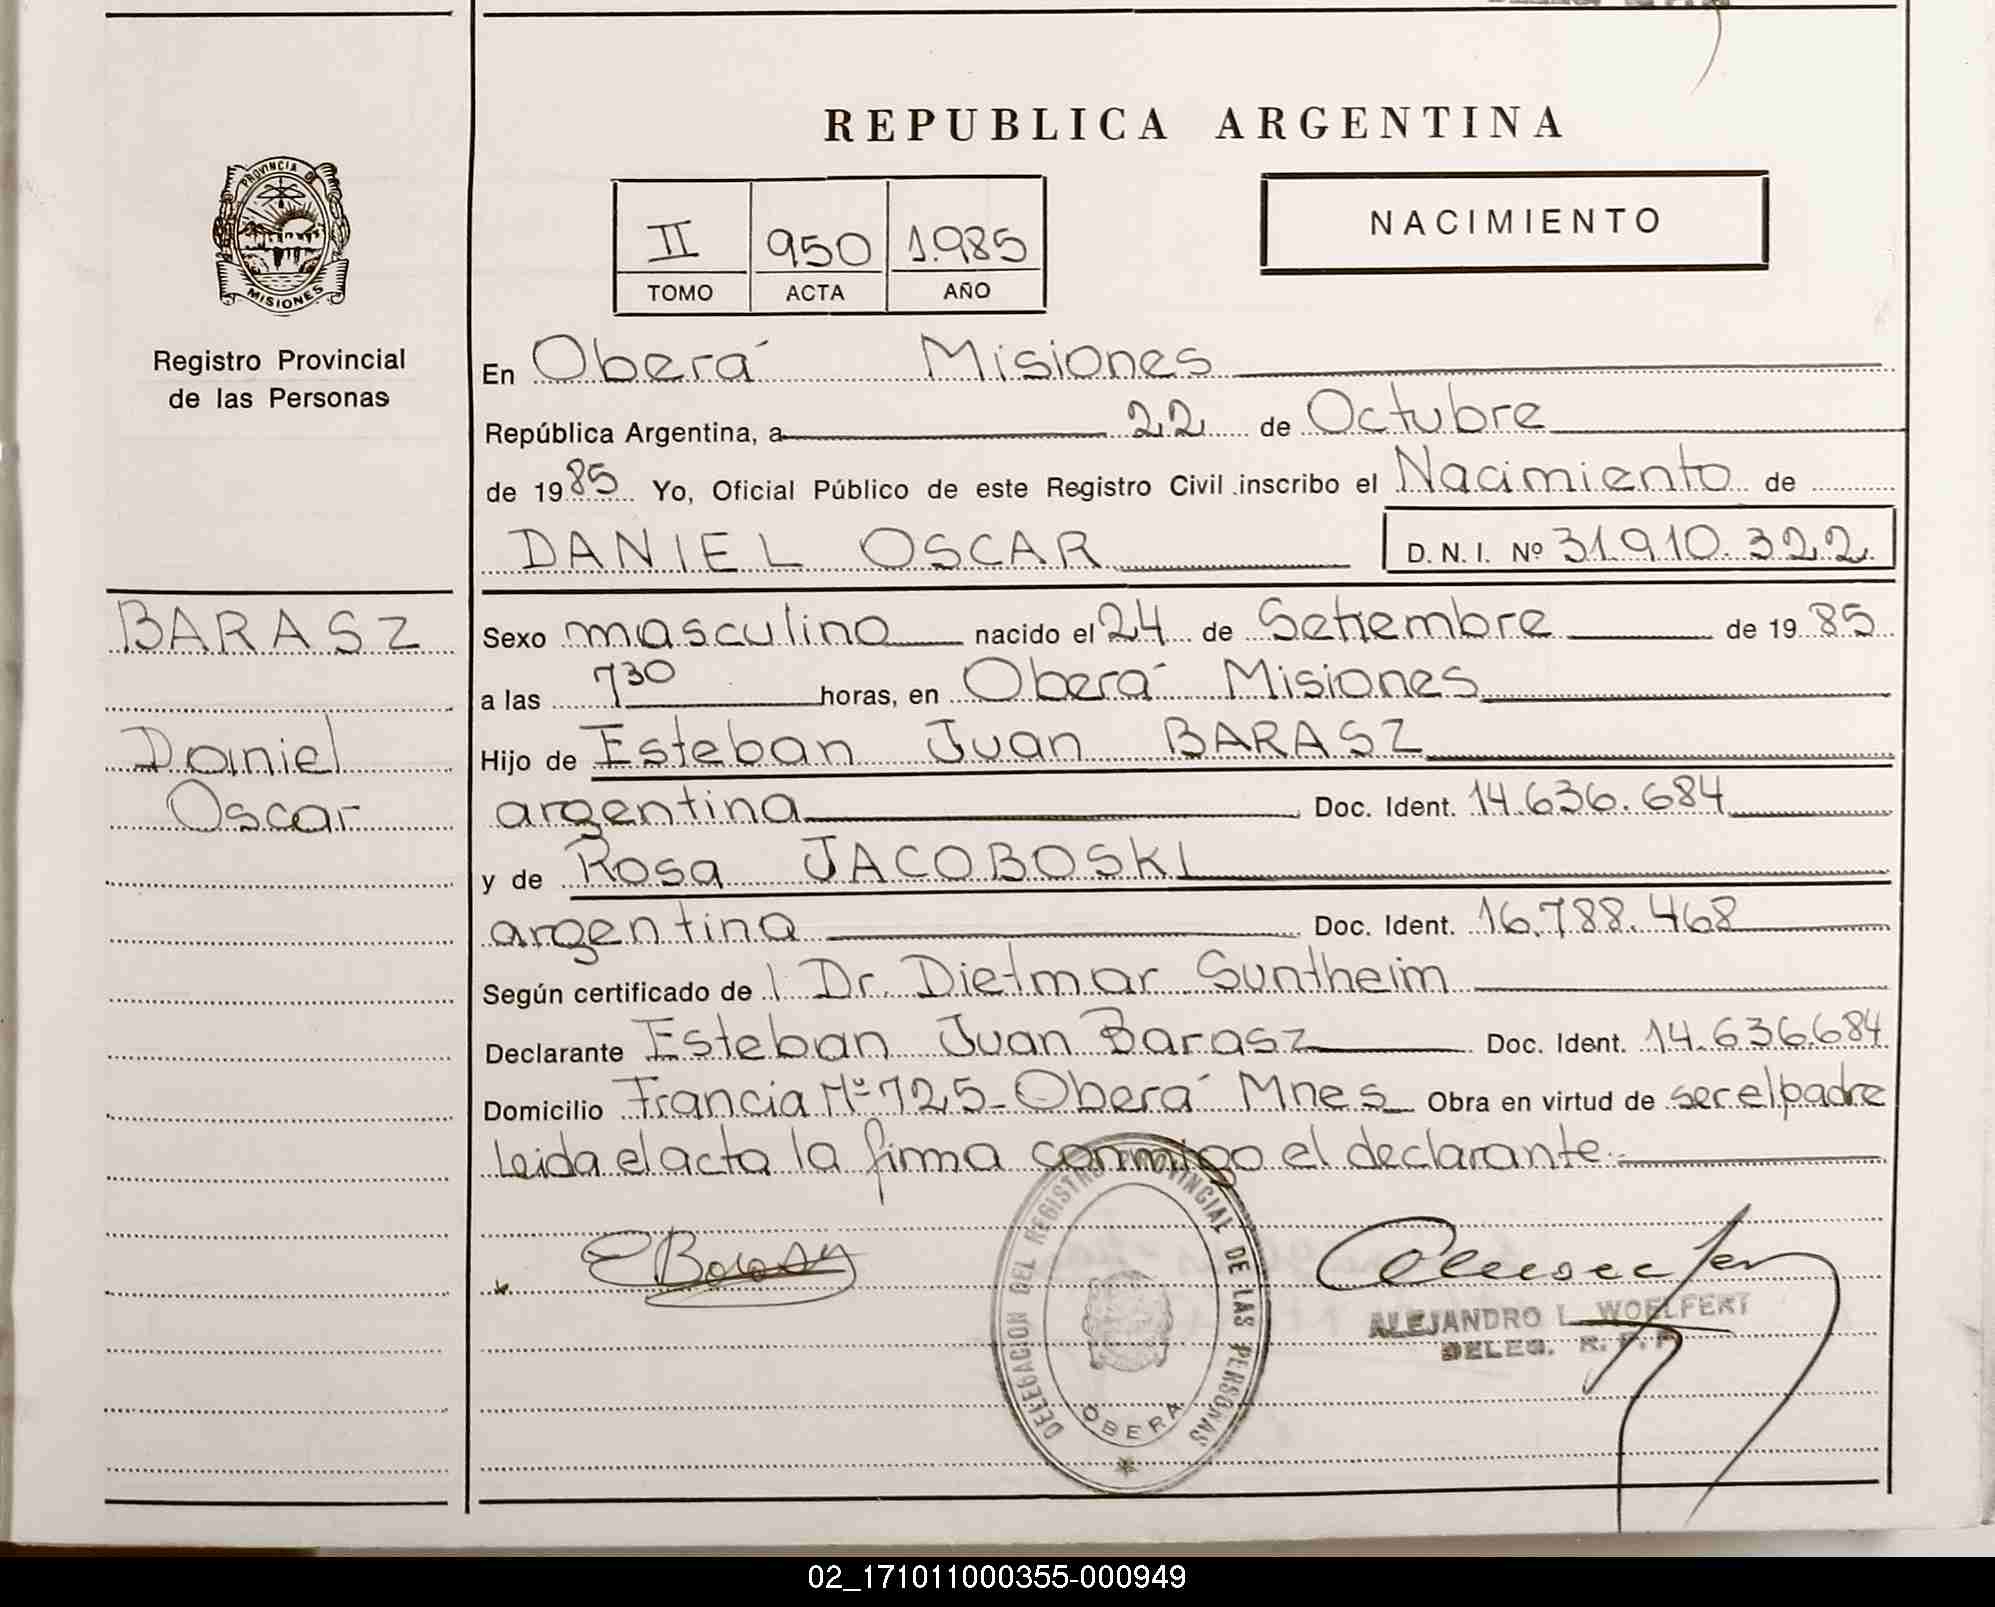 REPUBLICA ARGENTINA
PROVINCIA DE
MISIONES
Registro Provincial
de las Personas
II 950 1.985
TOMO ACTA AÑO
NACIMIENTO
En Oberá Misiones
República Argentina, a 22 de Octubre
de 1985 Yo, Oficial Público de este Registro Civil inscribo el Nacimiento de
DANIEL OSCAR D. N. I. Nº 31.910.322
BARASZ
Daniel
Oscar
Sexo masculino nacido el 24 de Setiembre de 1985
a las 7 30 horas, en Oberá Misiones
Hijo de Esteban Juan BARASZ
argentina Doc. Ident. 14.636.684
y de Rosa JACOBOSKI
argentina Doc. Ident. 16.788.468
Según certificado de l Dr. Dietmar Suntheim
Declarante Esteban Juan Barasz Doc. Ident. 14.636.684
Domicilio Francia Nº 725 - Oberá Mnes Obra en virtud de ser el padre
Leida el acta la firma conmigo el declarante.
DELEGACION DEL REGISTRO PROVINCIAL DE LAS PERSONAS
OBERA
ALEJANDRO L. WOELFERT
DELEG. R. P. P.
02_171011000355-000949